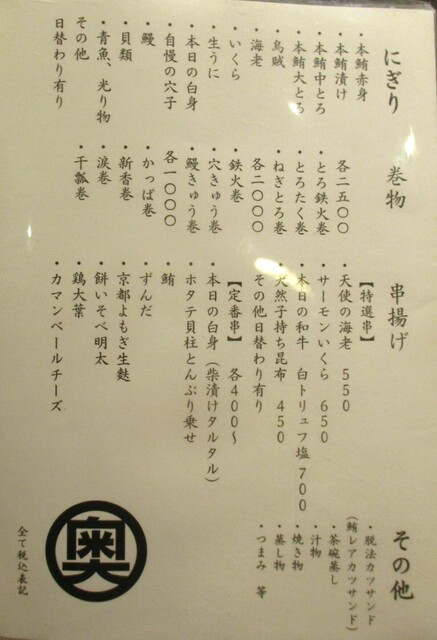 にぎり
・本鮪赤身
・本鮪漬け
・本鮪中とろ
・本鮪大とろ
・烏賊
・海老
・いくら
・生うに
・本日の白身
・自慢の穴子
・鰻
・貝類
・青魚、光り物
その他
日替わり有り
巻物
各二五〇〇
・とろ鉄火巻
・とろたく巻
・ねぎとろ巻
各二〇〇〇
・鉄火巻
・穴きゅう巻
・鰻きゅう巻
各一〇〇〇
・かっぱ巻
・新香巻
・涙巻
・干瓢巻
串揚げ
【特選串】
・天使の海老 550
・サーモンいくら 650
・本日の和牛 白トリュフ塩 700
・天然子持ち昆布 450
その他日替わり有り
【定番串】 各400〜
・本日の白身(柴漬けタルタル)
・ホタテ貝柱とんぶり乗せ
・鮪
・ずんだ
・京都よもぎ生麩
・餅いそべ明太
・鶏大葉
・カマンベールチーズ
その他
・脱法カツサンド
(鮪レアカツサンド)
・茶碗蒸し
・汁物
・焼き物
・蒸し物
・つまみ 等
奥
全て税込表記